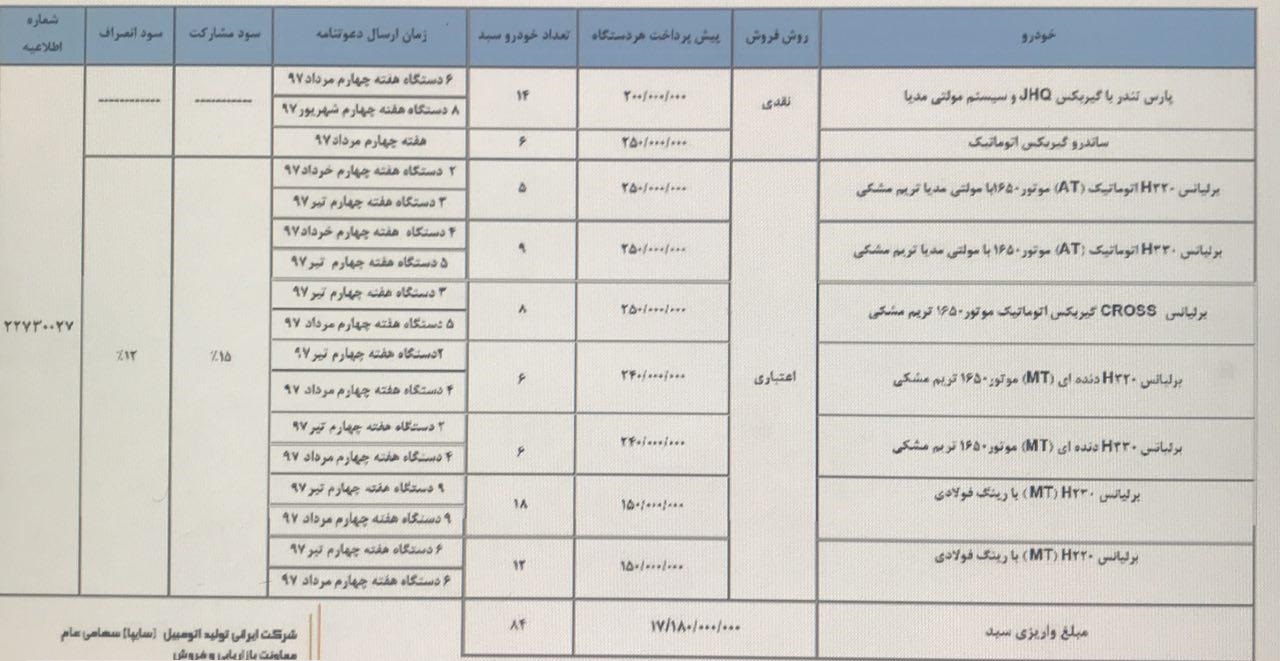 خودرو روش فروش پیش پرداخت هردستگاه تعداد خودرو سبد زمان ارسال دعوتنامه سود مشارکت سود انصراف شماره اطلاعیه
پارس تندر با گیربکس JHQ و سیستم مولتی مدیا نقدی ۲۰۰/۰۰۰/۰۰۰ ۱۴ ۶ دستگاه هفته چهارم مرداد۹۷ ----------- ------------ ۲۲۷۳۰۰۲۷
۸ دستگاه هفته چهارم شهریور۹۷
ساندرو گیربکس اتوماتیک ۲۵۰/۰۰۰/۰۰۰ ۶ هفته چهارم مرداد۹۷
برلیانس H۳۲۰ اتوماتیک (AT) موتور۱۶۵۰با مولتی مدیا تریم مشکی اعتباری ۲۵۰/۰۰۰/۰۰۰ ۵ ۲ دستگاه هفته چهارم خرداد۹۷ ٪۱۵ ٪۱۲
۳ دستگاه هفته چهارم تیر۹۷
برلیانس H۳۳۰ اتوماتیک (AT) موتور۱۶۵۰ با مولتی مدیا تریم مشکی ۲۵۰/۰۰۰/۰۰۰ ۹ ۴ دستگاه هفته چهارم خرداد۹۷
۵ دستگاه هفته چهارم تیر۹۷
برلیانس CROSS گیربکس اتوماتیک موتور۱۶۵۰ تریم مشکی ۲۵۰/۰۰۰/۰۰۰ ۸ ۳ دستگاه هفته چهارم تیر۹۷
۵ دستگاه هفته چهارم مرداد ۹۷
برلیانس H۳۲۰ دنده ای (MT) موتور۱۶۵۰ تریم مشکی ۲۴۰/۰۰۰/۰۰۰ ۶ ۲دستگاه هفته چهارم تیر۹۷
۴ دستگاه هفته چهارم مرداد ۹۷
برلیانس H۳۳۰ دنده ای (MT) موتور۱۶۵۰ تریم مشکی ۲۴۰/۰۰۰/۰۰۰ ۶ ۲ دستگاه هفته چهارم تیر۹۷
۴ دستگاه هفته چهارم مرداد ۹۷
برلیانس H۲۳۰ (MT) با رینگ فولادی ۱۵۰/۰۰۰/۰۰۰ ۱۸ ۹ دستگاه هفته چهارم تیر۹۷
۹ دستگاه هفته چهارم مرداد ۹۷
برلیانس H۲۲۰ (MT) با رینگ فولادی ۱۵۰/۰۰۰/۰۰۰ ۱۲ ۶ دستگاه هفته چهارم تیر۹۷
۶ دستگاه هفته چهارم مرداد ۹۷
مبلغ واریزی سبد ۱۷/۱۸۰/۰۰۰/۰۰۰ ۸۴
شرکت ایرانی تولید اتومبیل (سایپا) سهامی عام
معاونت بازاریابی و فروش